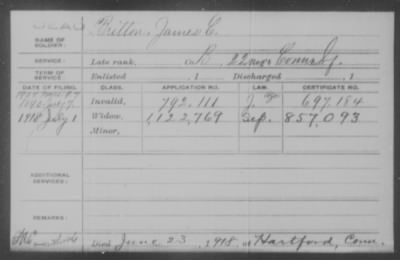 NAME OF SOLDIER: Britton, James C.
SERVICE: Late rank, Co. B, 22 Reg't Conn. Inf.
TERM OF SERVICE: Enlisted , 1 Discharged , 1
DATE OF FILING. CLASS. APPLICATION NO. LAW. CERTIFICATE NO.
Invalid, 792.111 J. 697.184
1918 July 1 Widow, 1,122,769 Sep. 857,093
Minor,
ADDITIONAL SERVICES:
REMARKS:
Died June 23, 1918, at Hartford, Conn.